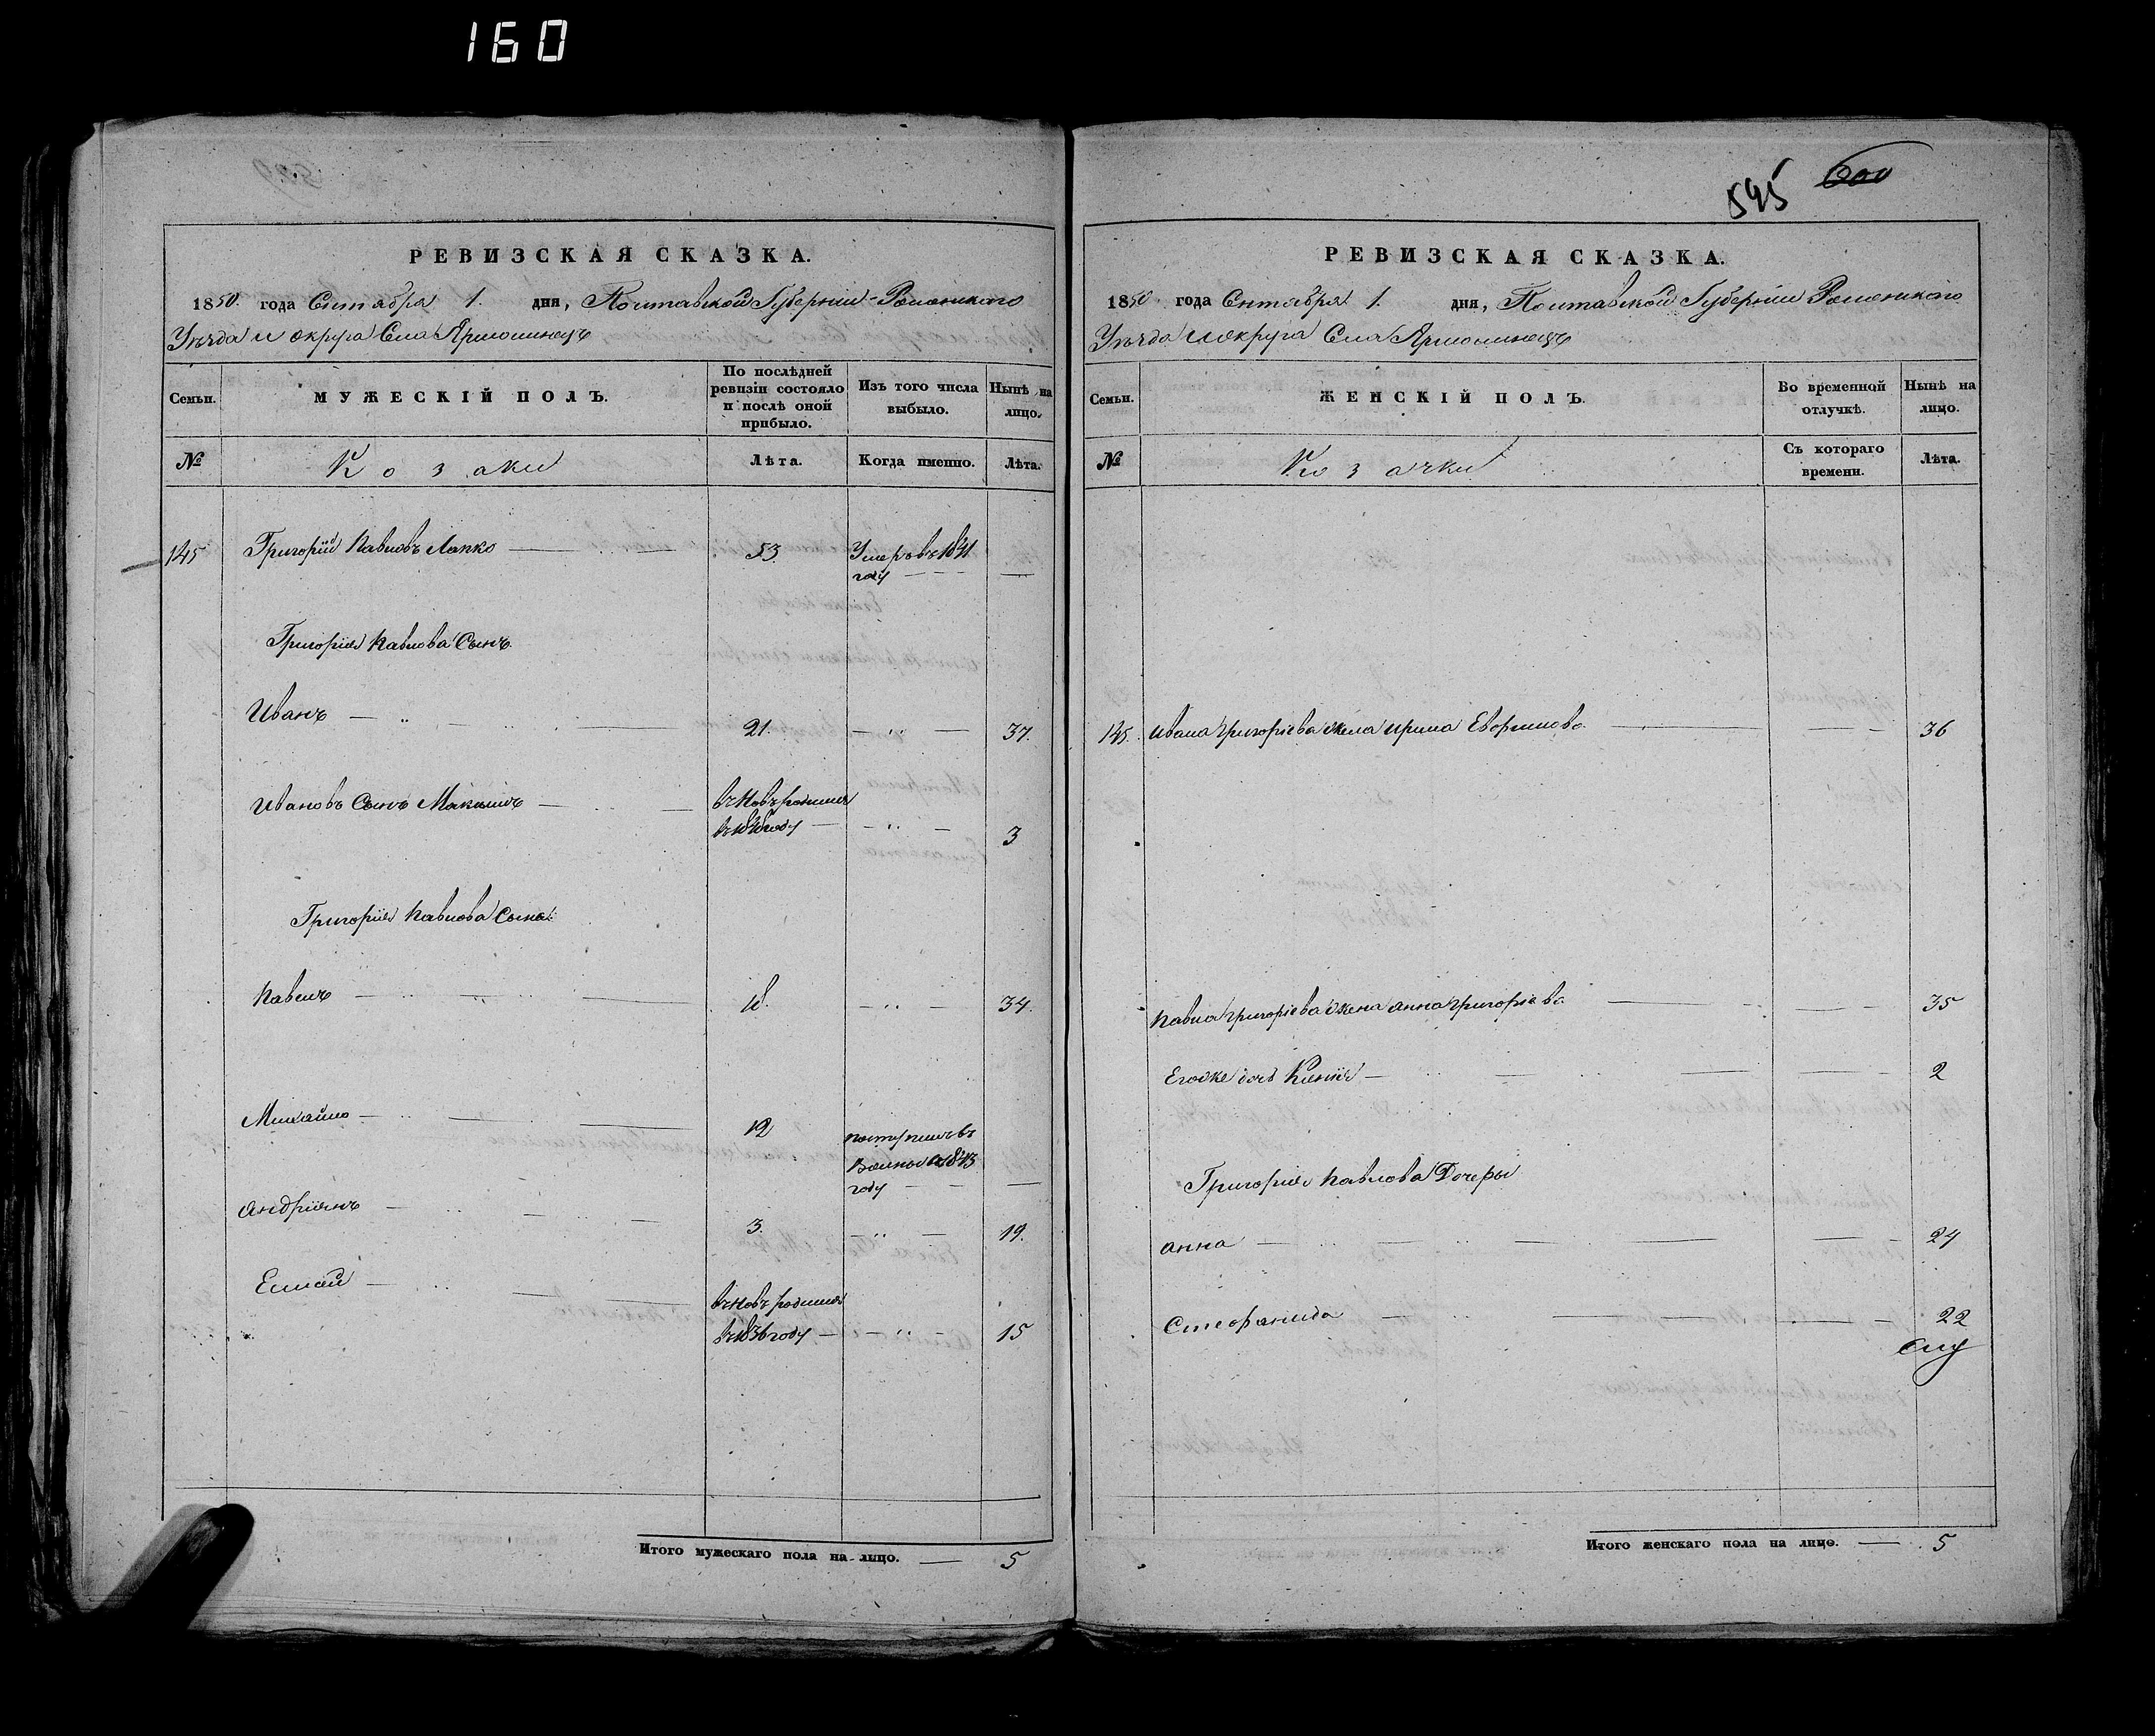 160
595 600
РЕВИЗСКАЯ СКАЗКА.
1850. года Сентября 1. дня, Полтавской Губерніи Роменского
Уѣзда и округа Села Ярмолинецъ
Семьи. МУЖЕСКІЙ ПОЛЪ. По послѣдней ревизіи состояло и послѣ оной прибыло. Изъ того числа выбыло. Нынѣ на лицо.
№ Козаки Лѣта. Когда именно. Лѣта.
145 Григорій Павловъ Лапко 53. Умеръ въ 1841
году
Григорія Павлова Сынъ
Иванъ 21. 37.
Ивановъ Сынъ Максимъ въ новъ родился
въ 1848 году 3
Григорія Павлова Сына
Павелъ 18. 34.
Михайло 12 поступилъ въ
1843
году
Андріянъ 3. 19.
Елисей въ новъ родился
въ 1836 году 15
Итого мужескаго пола на лицо. 5
РЕВИЗСКАЯ СКАЗКА.
1850 года Сентября 1. дня, Полтавской Губерніи Роменского
Уѣзда и округа Села Ярмолинецъ
Семьи. ЖЕНСКІЙ ПОЛЪ. Во временной отлучкѣ. Нынѣ на лицо.
№ Козачки Съ котораго времени. Лѣта.
145. Ивана Григоріева жена Ирина 36
Павла Григоріева жена Анна Григоріева 35
Егоже дочь Ксенія 2
Григорія Павлова Дочеры
Анна 24
Стефанида 22
Итого женскаго пола на лицо. 5